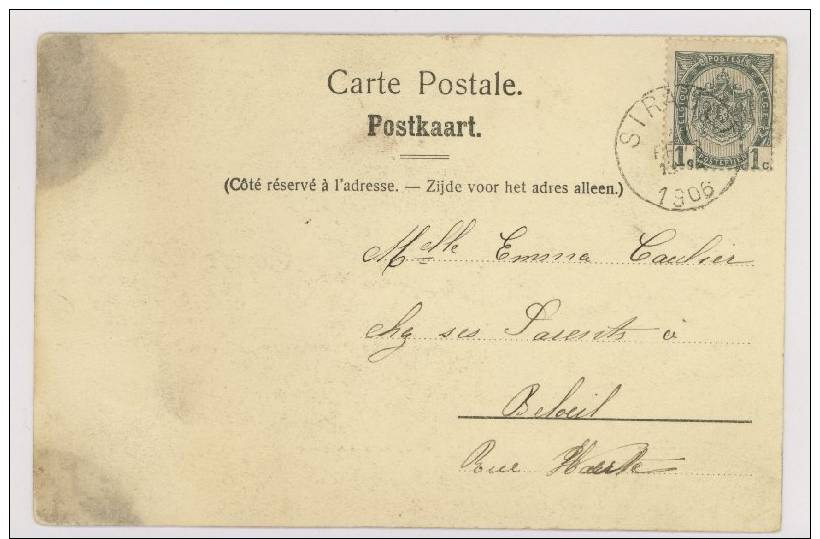 Carte Postale.
Postkaart.
(Côté réservé à l'adresse. — Zijde voor het adres alleen.)
POSTES
BELGIQUE
BELGIE
POSTERIJEN
1c. 1c.
1906
Melle Emma Caulier
chez ses Parents à
Beloeil
Rue Haute